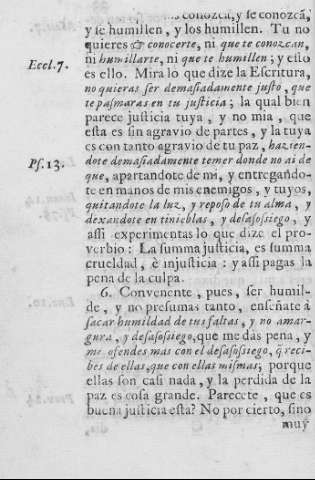 conozcã, y se conozcã,
y se humillen, y los humillen. Tu no
quieres conocerte, ni que te conozcan,
ni humillarte, ni que te humillen; y esto
Eccl. 7.
es ello. Mira lo que dize la Escritura,
no quieras ser demasiadamente justo, que
te pasmaras en tu justicia; la qual bien
parece justicia tuya, y no mia, que
esta es sin agravio de partes, y la tuya
es con tanto agravio de tu paz, hazien-
Ps. 13.
dote demasiadamente temer donde no ai de
que, apartandote de mi, y entregando-
te en manos de mis enemigos, y tuyos,
quitandote la luz, y reposo de tu alma, y
dexandote en tinieblas, y desasosiego, y
assi experimentas lo que dize el pro-
verbio: La summa justicia, es summa
crueldad, è injusticia: y assi pagas la
pena de la culpa.
6. Convenente, pues, ser humil-
de, y no presumas tanto, enseñate à
sacar humildad de tus faltas, y no amar-
gura, y desasosiego, que me dàs pena, y
me ofendes mas con el desasosiego, q̃ reci-
bes de ellas, que con ellas mismas; porque
ellas son casi nada, y la perdida de la
paz es cosa grande. Parecete, que es
buena justicia esta? No por cierto, sino
muy